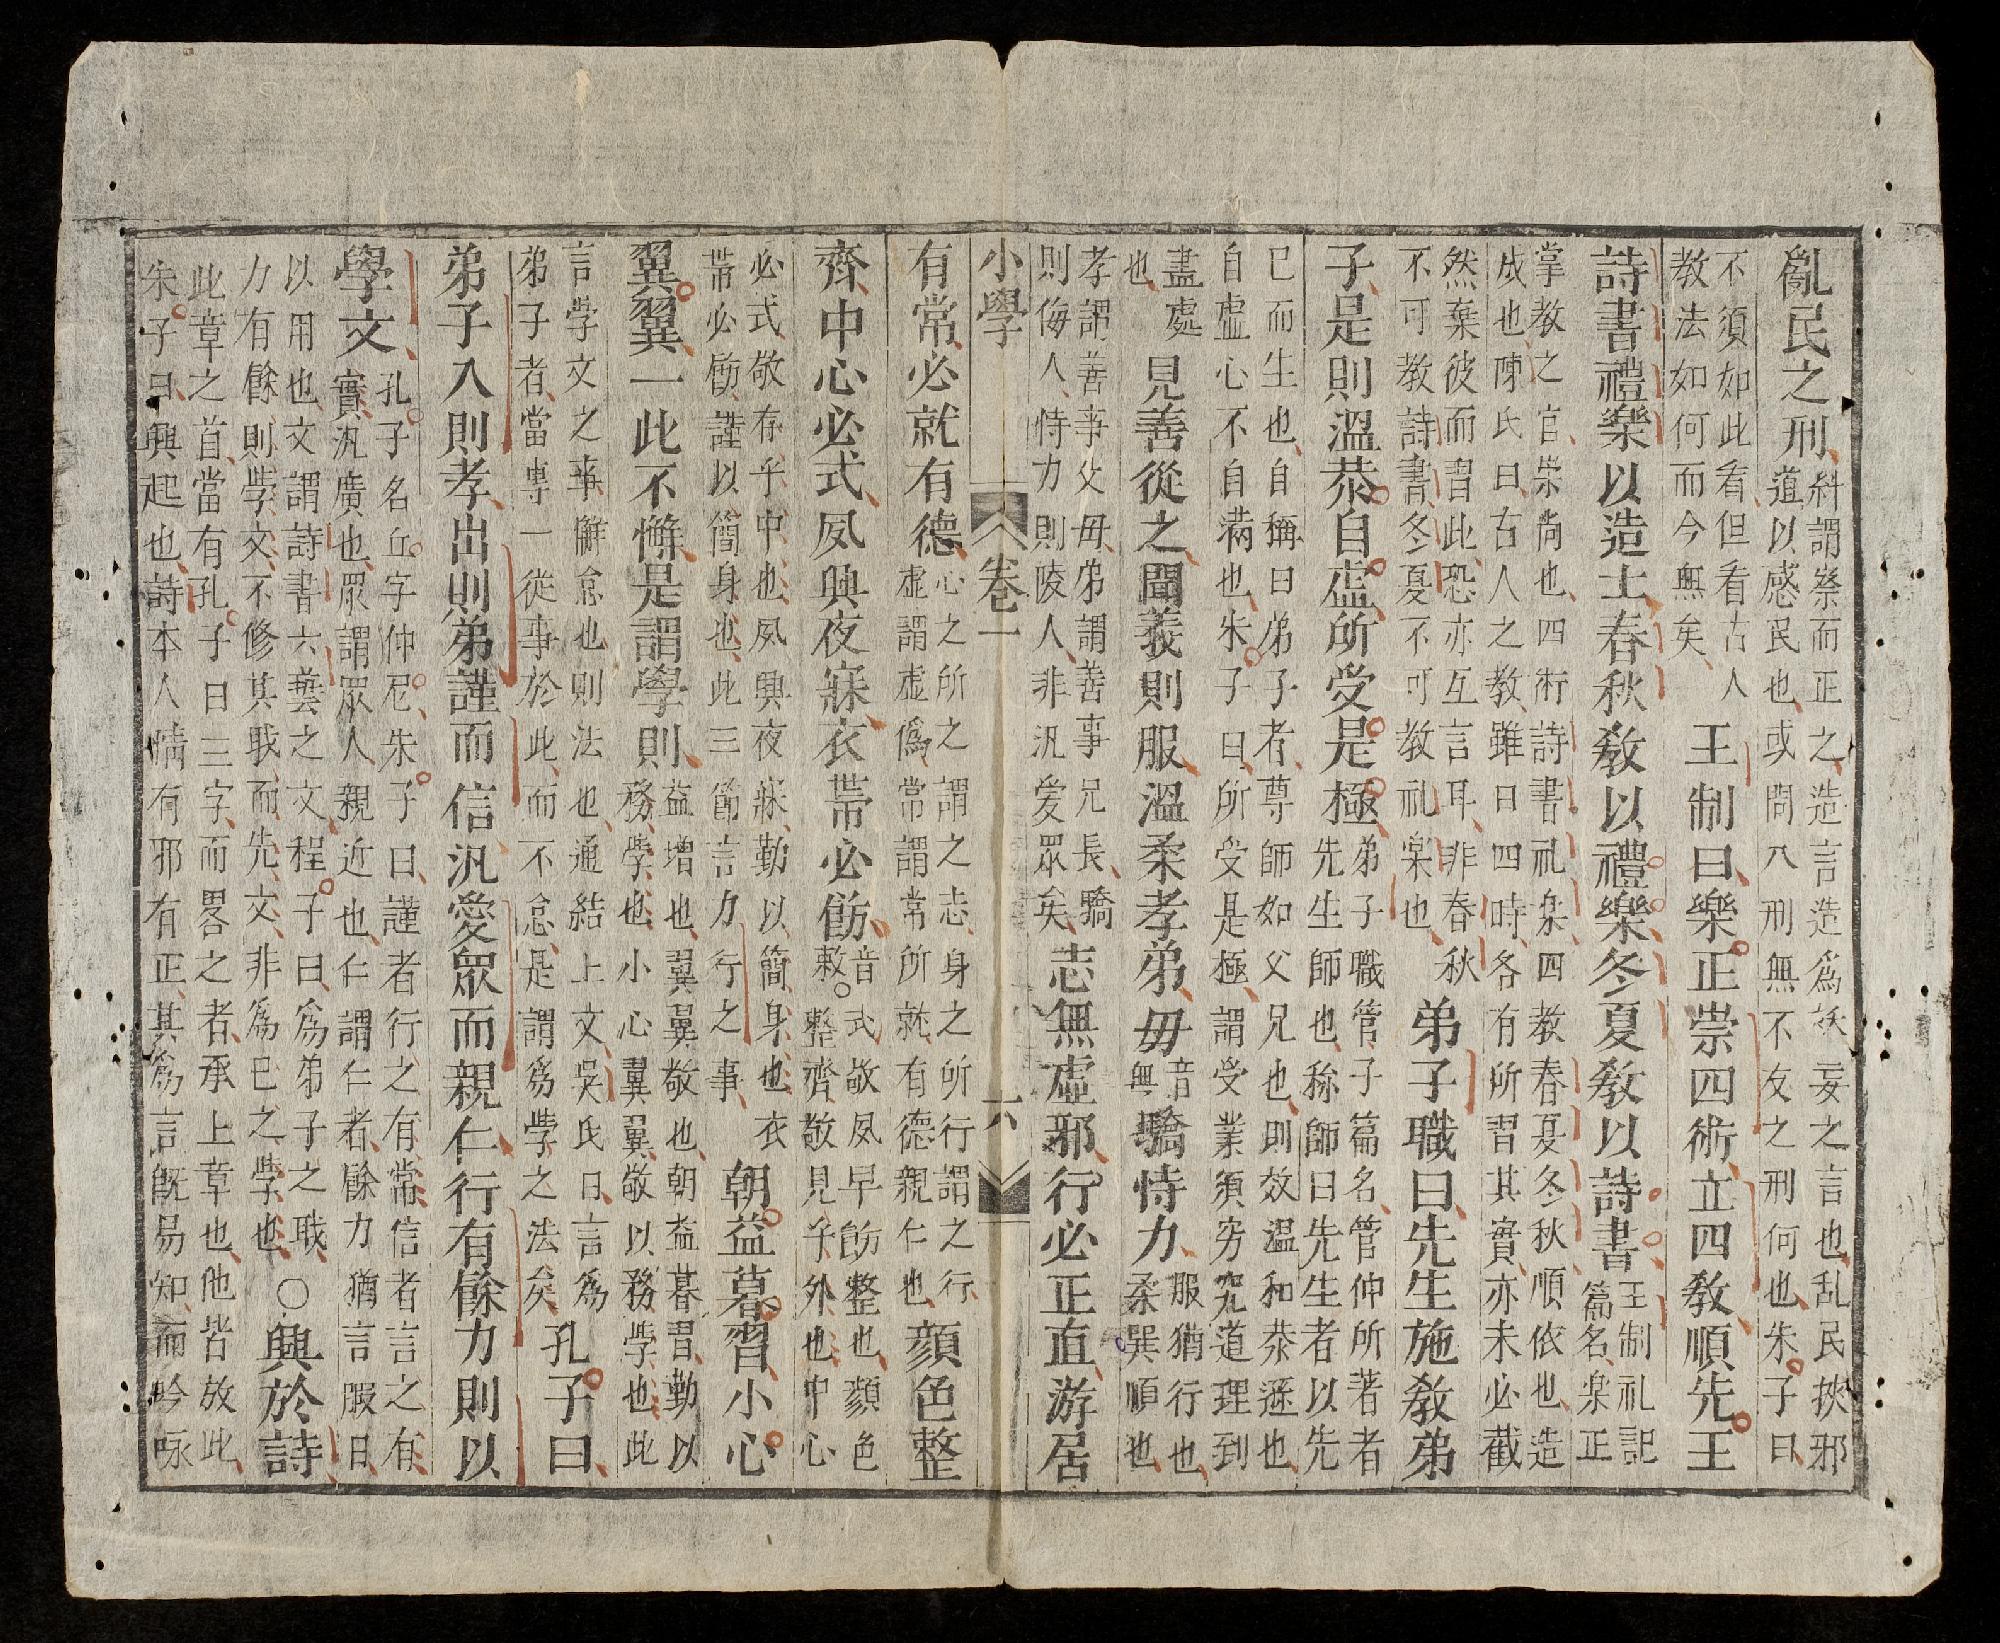 亂民之刑糾謂察而正之造言造爲妖妄之言也乱民挾邪道以惑民也或問八刑無不友之刑何也朱子曰
不須如此看但看古人教法如何而今無矣王制曰樂正崇四術立四敎順先王
詩書禮樂以造士春秋敎以禮樂冬夏敎以詩書王制礼記篇名楽正
掌教之官崇尚也四術詩書礼楽四教春夏冬秋順依也造成也陳氏曰古人之教雖曰四時各有所習其實亦未必截
然棄彼而習此恐亦互言耳非春秋不可教詩書冬夏不可教礼楽也弟子職曰先生施敎弟
子是則溫恭自虛所受是極弟子職管子篇名管仲所著者先生師也称師曰先生者以先
已而生也自稱曰弟子者尊師如父兄也則效温和恭遜也自虛心不自满也朱子曰所受是極謂受業須穷究道理到
盡處也見善從之聞義則服溫柔孝弟毋音無驕恃力服猶行也柔巽順也
孝謂善事父毋弟謂善事兄長驕則侮人恃力則陵人非汎爱眾矣志無虛邪行必正直游居
小學 卷一 六
有常必就有德心之所之謂之志身之所行謂之行虛謂虛僞常謂常所就有德親仁也顏色整
齊中心必式夙興夜寐衣帶必飭音敕○式敬夙早飭整也顏色整齊敬見于外也中心
必式敬存乎中也夙興夜寐勤以簡身也衣帶必飭謹以簡身也此三節言力行之事朝益暮習小心
翼翼一此不懈是謂學則益增也翼翼敬也朝益暮習勤以務学也小心翼翼敬以務学也此
言学文之事懈怠也則法也通結上文吳氏曰言爲弟子者當專一從事於此而不怠是謂爲学之法矣孔子曰
弟子入則孝出則弟謹而信汎愛眾而親仁行有餘力則以
學文孔子名丘字仲尼朱子曰謹者行之有常信者言之有實汎廣也眾謂眾人親近也仁謂仁者餘力猶言服日
以用也文謂詩書六藝之文程子曰爲弟子之職力有餘則学文不修其職而先文非爲己之学也○興於詩
此章之首當有孔子曰三字而畧之者承上章也他皆放此朱子曰興起也詩本人情有邪有正其爲言旣易知而吟咏